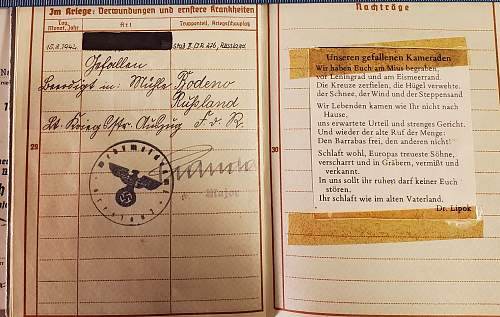 Im Kriege: Verwundungen und ernstere Krankheiten
Tag, Monat, Jahr
Art
Truppenteil, Kriegsschauplatz
Stab II./I.R. 276, Russland
Gefallen
Beerdigt in: Mühle
Rußland
Lt. Auszug F. d. R.
Major
29
Nachträge
30
Unseren gefallenen Kameraden
Wir haben Euch am Mius begraben,
vor Leningrad und am Eismeerrand.
Die Kreuze zerfielen, die Hügel verwehte.
der Schnee, der Wind und der Steppensand
Wir Lebenden kamen wie Ihr nicht nach
Hause,
uns erwartete Urteil und strenges Gericht.
Und wieder der alte Ruf der Menge:
Den Barrabas frei, den anderen nicht!
Schlaft wohl, Europas treueste Söhne,
verscharrt und in Gräbern, vermißt und
verkannt.
In uns sollt ihr ruhen! darf keiner Euch
stören,
Ihr schlaft wie im alten Vaterland.
Dr. Lipok